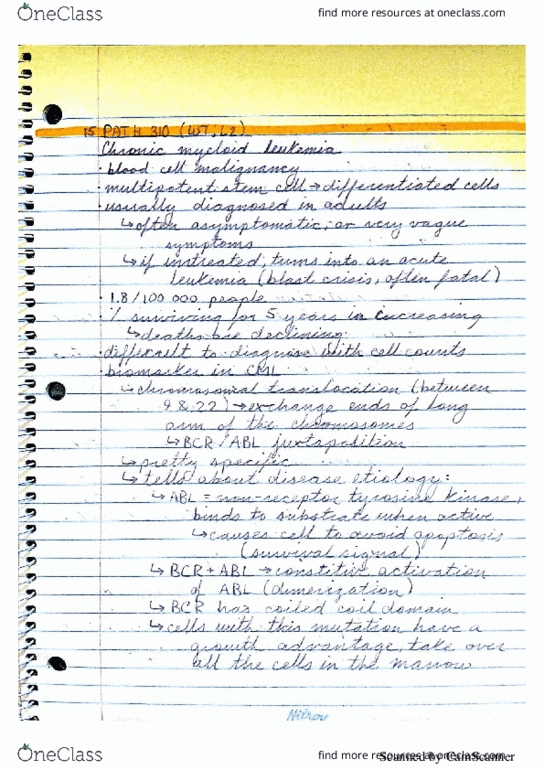 OneClass
find more resources at oneclass.com
15 PATH 310 (WT; L2)
Chronic myeloid leukemia
· blood cell malignancy
· multipotent stem cell → differentiated cells
· usually diagnosed in adults
↳ often asymptomatic, or very vague
symptoms
↳ if untreated, turns into an acute
leukemia (blast crisis, often fatal)
· 1.8/100 000 people
· % surviving for 5 years is increasing
↳ deaths are declining
· difficult to diagnose with cell counts
· biomarker in CML
↳ chromosomal translocation (between
9 & 22) → exchange ends of long
arm of the chromosomes
↳ BCR/ABL juxtaposition
↳ pretty specific
↳ tells about disease etiology:
↳ ABL = non-receptor tyrosine kinase,
binds to substrate when active
↳ causes cell to avoid apoptosis
(survival signal)
↳ BCR + ABL → constitive activation
of ABL (dimerization)
↳ BCR has coiled coil domain
↳ cells with this mutation have a
growth advantage, take over
all the cells in the marrow
Hilroy
OneClass
find more resources at oneclass.com
Scanned by CamScanner